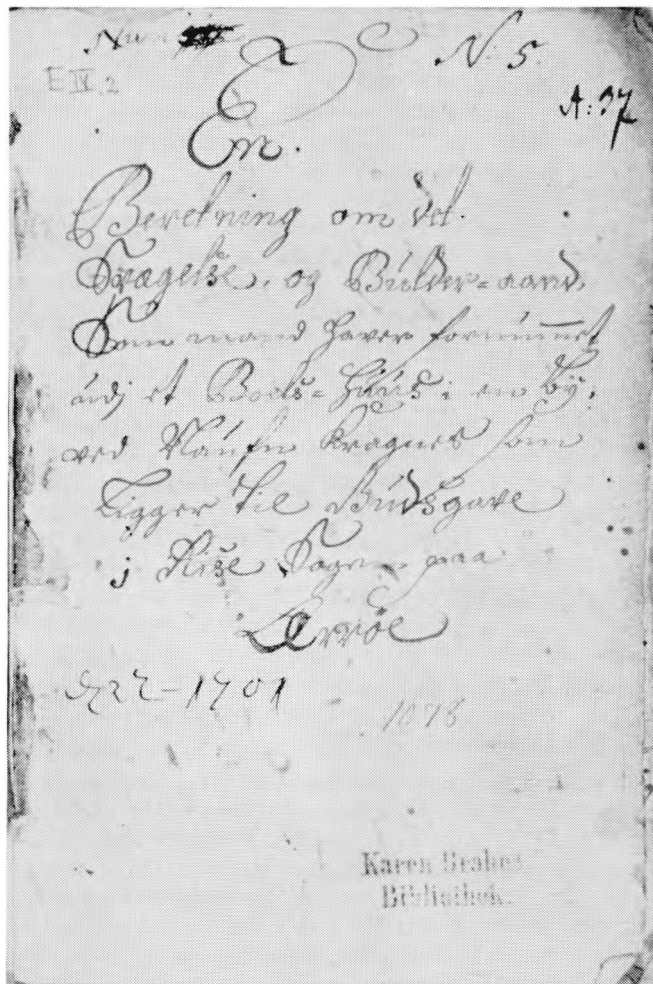 N: 5.
E IV, 2
A: 37
En.
Beretning om det.
Spøgelse. og Bulder=aand,
Som mand haver fornummet
udj et Boels=Huus i en by.
ved Naufn Kragnes som
Ligger til Budsgave
j Rise Sogn paa
Ærröe
1701
1078
Karen Brahes
Bibliothek.